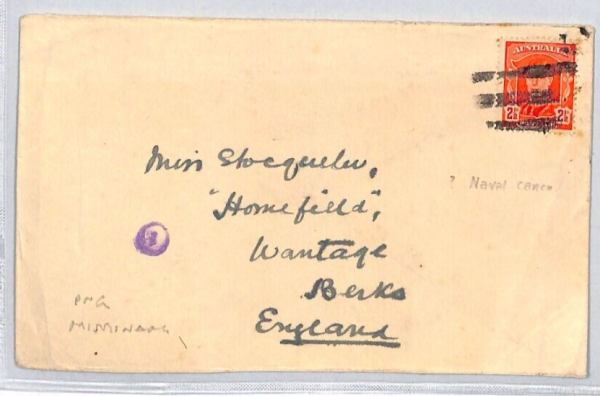 AUSTRALIA
2½ 2½
Miss Stocqueler,
"Homefield",
Wantage
Berks
England
? Naval cancn
PNG
MISSIONARY